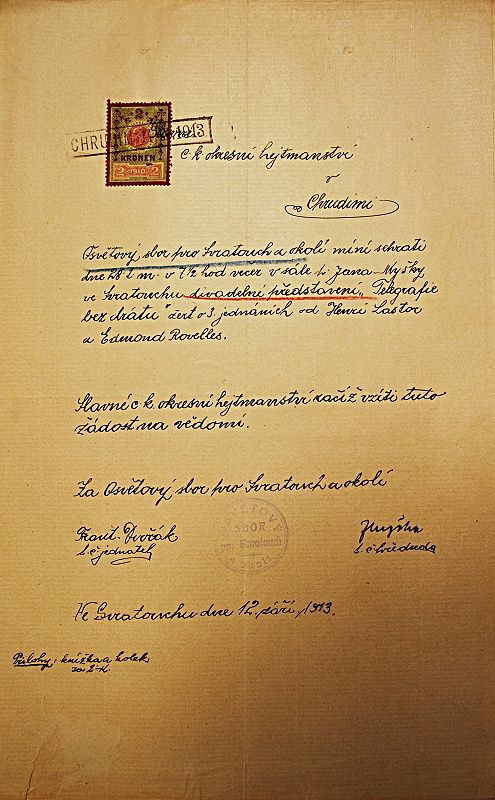 2
CHRUDIM 1913
KRONEN
2 1910 2
c. k. okresní hejtmanství
v
Chrudimi
Osvětový sbor pro Svratouch a okolí míní sehrati
dne 28 t. m. v 1/2 hod večer v sále p. Jana Myšky
ve Svratouchu divadelní představení „Telegrafie
bez drátu žert o 3 jednáních od Henri Lástor
a Edmond Rovelles.
Slavné c k okresní hejtmanství račiž vzíti tuto
žádost na vědomí.
Za Osvětový sbor pro Svratouch a okolí
Frant. Dvořák
t. č. jednatel
JMyška
t. č. předseda
OSVĚTOVÝ
SBOR
pro Svratouch
Ve Svratouchu dne 12. září, 1913.
Přílohy: knížka a kolek
za 2 K.